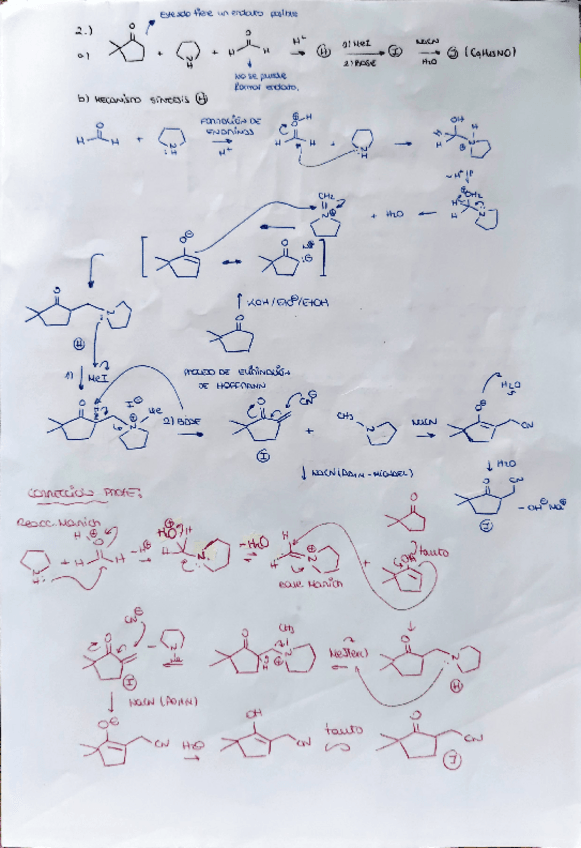 2.)
a)
Esteudo tiene un enolato posible
O + N H + O H H
H⁺
H
1) MeI
2) BASE
I
NaCN
H₂O
J (C₉H₁₃NO)
NO se puede
formar enolato.
b) MECANISMO SÍNTESIS H
FORMACIÓN DE
ENAMINAS
H⁺
CH₂
+ H₂O
KOH / EtO⊖ / EtOH
H
1)
MeI
PRODUCTO DE ELIMINACIÓN
DE HOFFMANN
I⊖
Me
2) BASE
I
+
CH₃
NaCN
CN⊖
H₂O
CN
↓ NaCN (ADN - MICHAEL)
↓ H₂O
CN
- OH⊖ Na⊕
CORRECCIÓN PROFE:
Reacc. Manich
-H⊕
-H₂O
Base Manich
+
OH
tauto
CN⊖
I
CH₃
MeI(exc)
H
↓ NaCN (ADMN)
CN
H₂O
OH
CN
tauto
CN